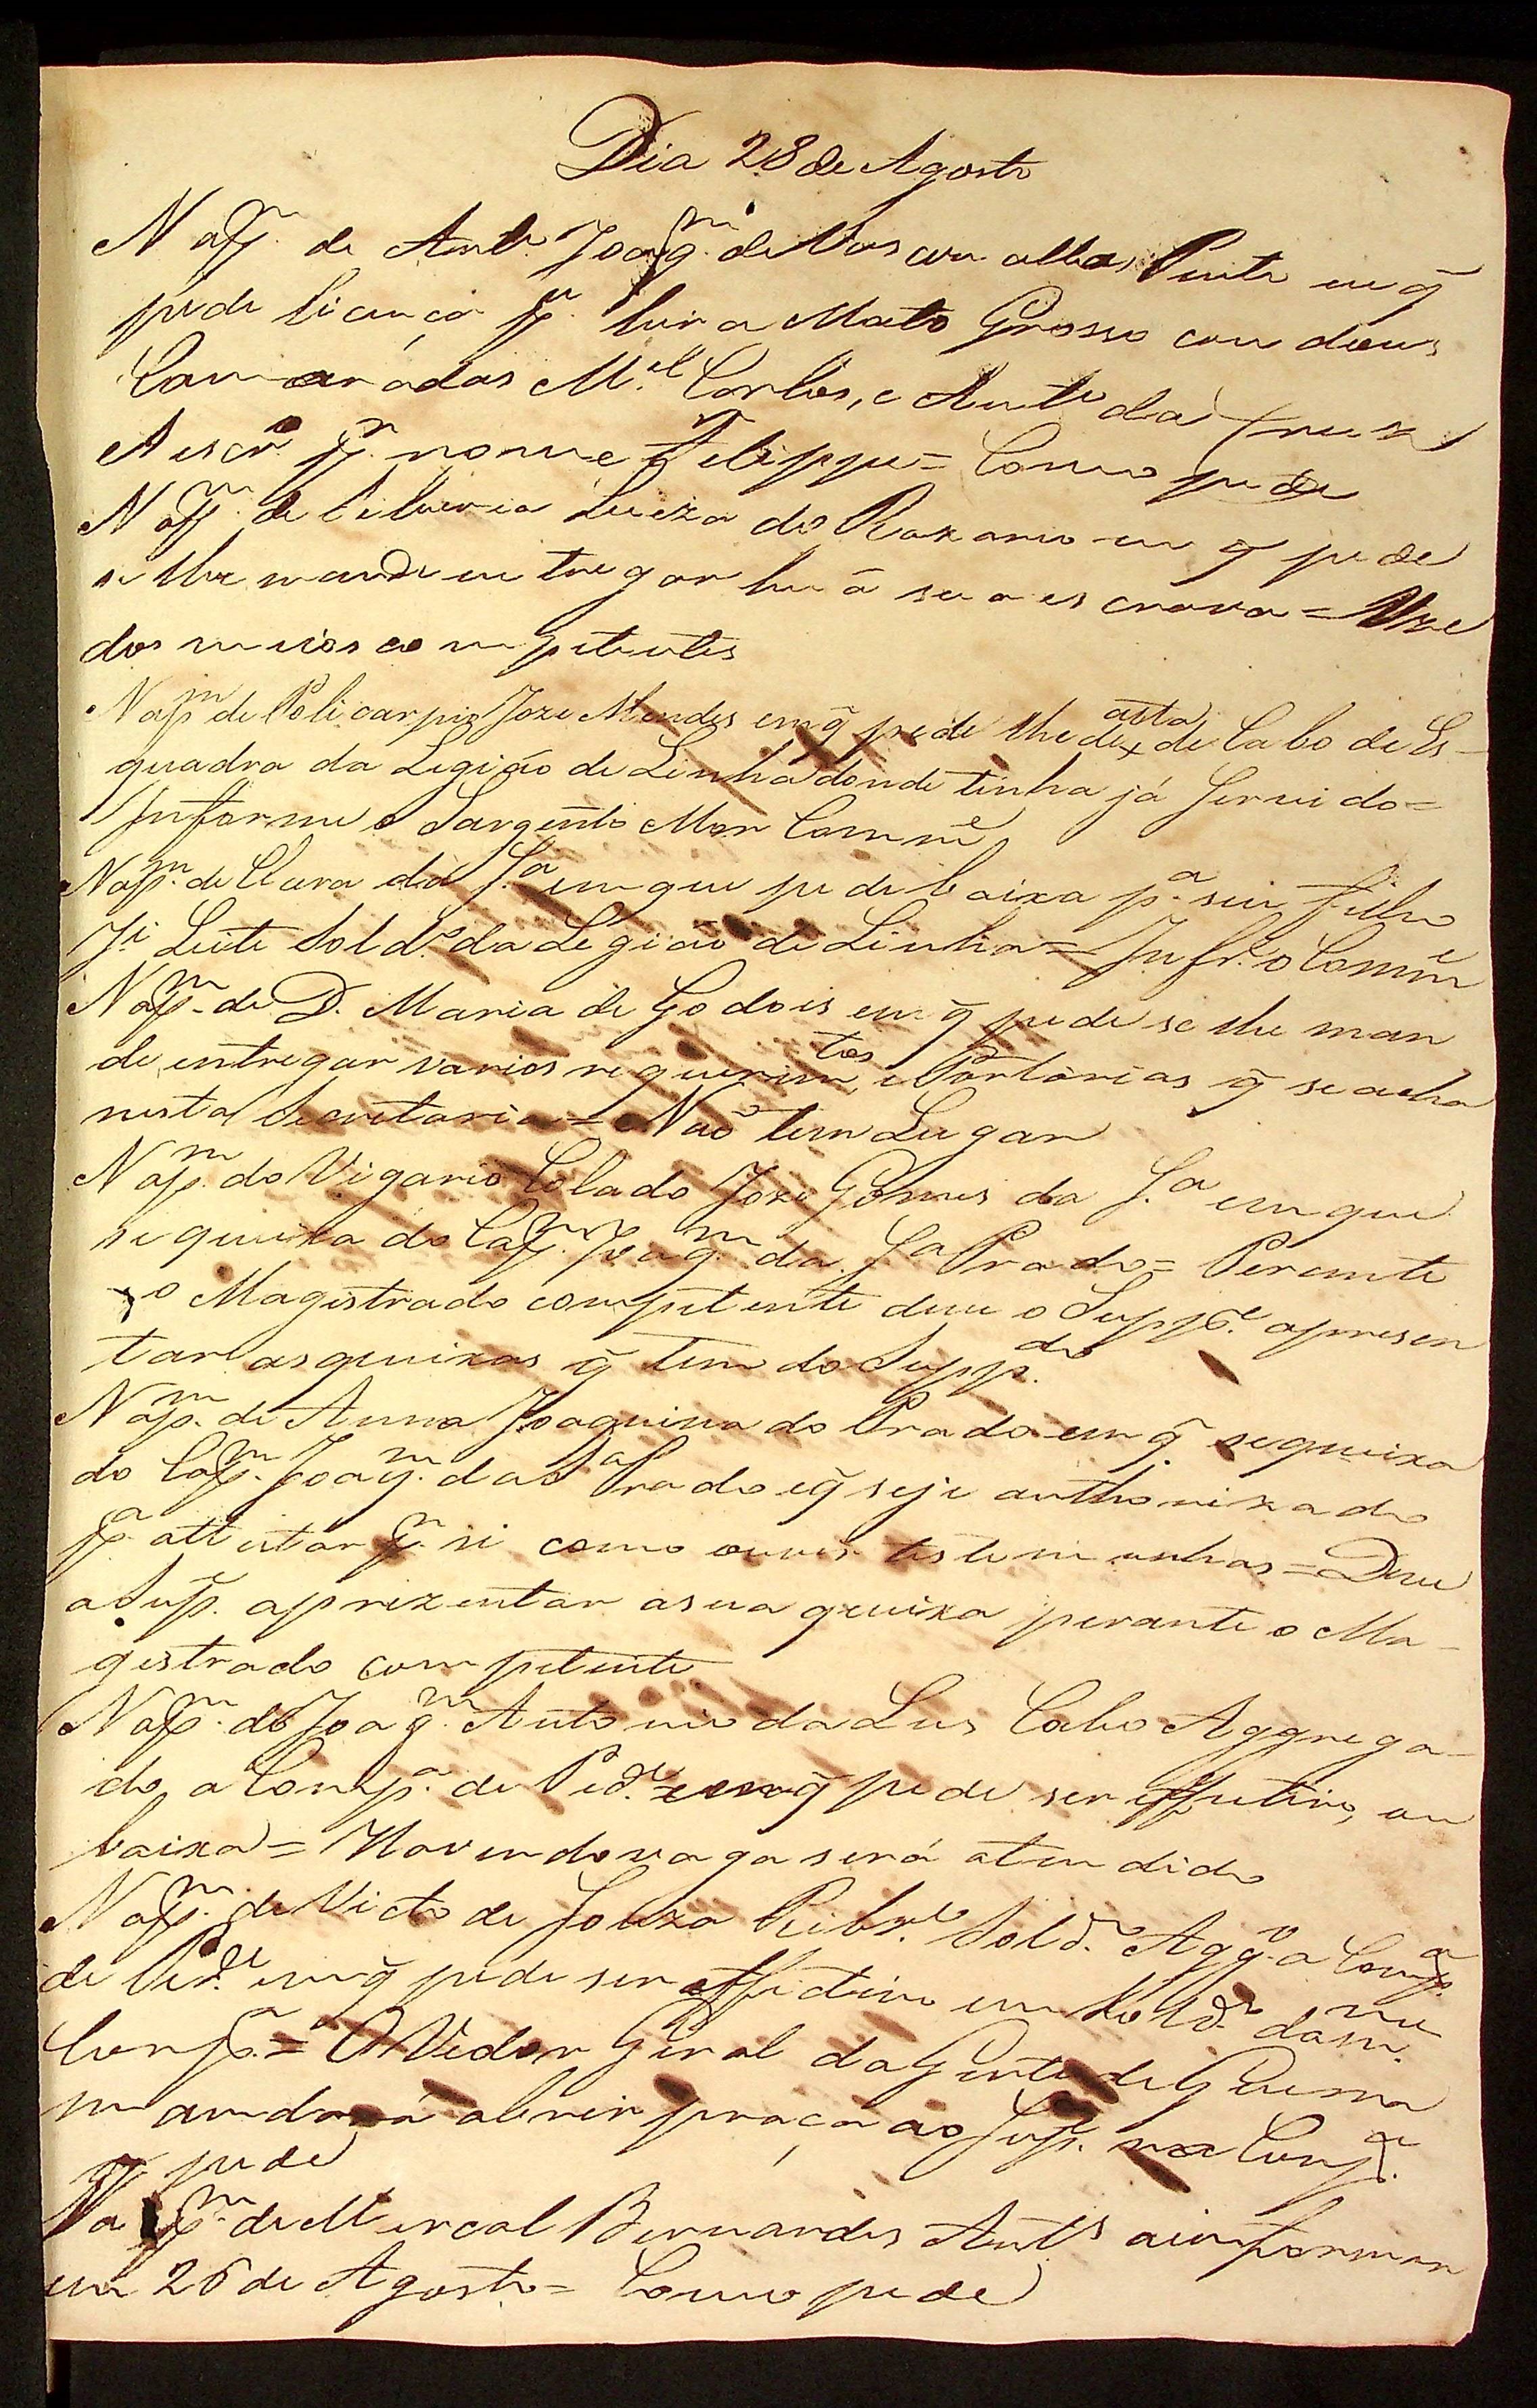 Dia 28 de Agosto
N a p.m de Ant.o Joaq.m de Vasconcellos Pinto em q̃
pede licença p.a hir a Mato Grosso com dous
Camaradas M.el Carlos, e Ant.o da Cruz
e escr.o p.r nome Felippe = Como pede
N a p.m de Liberia Luiza do Rozario em q̃ pede
se lhe mande entregar huã sua escrava = Uze
dos meios competentes
N a p.m de Policarpio Joze Mendes em q̃ pede lhe de alta de Cabo de Es-
quadra da Legião de Linha donde tinha já servido =
Informe o Sargento Mor Comm.e
N a p.m de Clara da S.a em que pede baixa p.a seu filho
J.e Leite Sold.o da Legião de Linha = Inf.e o Comm.e
N a p.m de D. Maria de Godois em q̃ pede se lhe man
de entregar varios requerim.tos e Portarias q̃ se acha
nesta Secretaria = Naõ tem Lugar
N a p.m do Vigario Colado Joze Gomes da S.a em que
se queixa do Cap.m Joaq.m da S.a Prado = Perante
o Magistrado competente deve o Supp.e apresen
tar as queixas q̃ tem do Supp.do
N a p.m de Anna Joaquina do Prado em q̃ se queixa
do Cap.m Joaq.m da S.a Prado e q̃ seje authorizado
p.a attestar p.r si como ouvir testemunhas = Deve
a Sup.e aprezentar a sua queixa perante o Ma-
gistrado competente
N a p.m de Joaq.m Antonio da Lus Cabo Aggrega-
do a Comp.a de Ped.es em q̃ pede ser effectivo, ou
baixa = Havendo vaga será atendido
N a p.m de Victo de Souza Ribr.o Sold.o Agg.o a Comp.a
de Ped.es em q̃ pede ser effectivo em Sold.o da m.ma
Comp.a = O Vedor Geral da Gente de Guerra
mandará abrir praça ao Sup.e na Comp.a
q̃ pede
N a p.m de Mercal Bernardes Ant.s a informar
em 26 de Agosto = Como pede